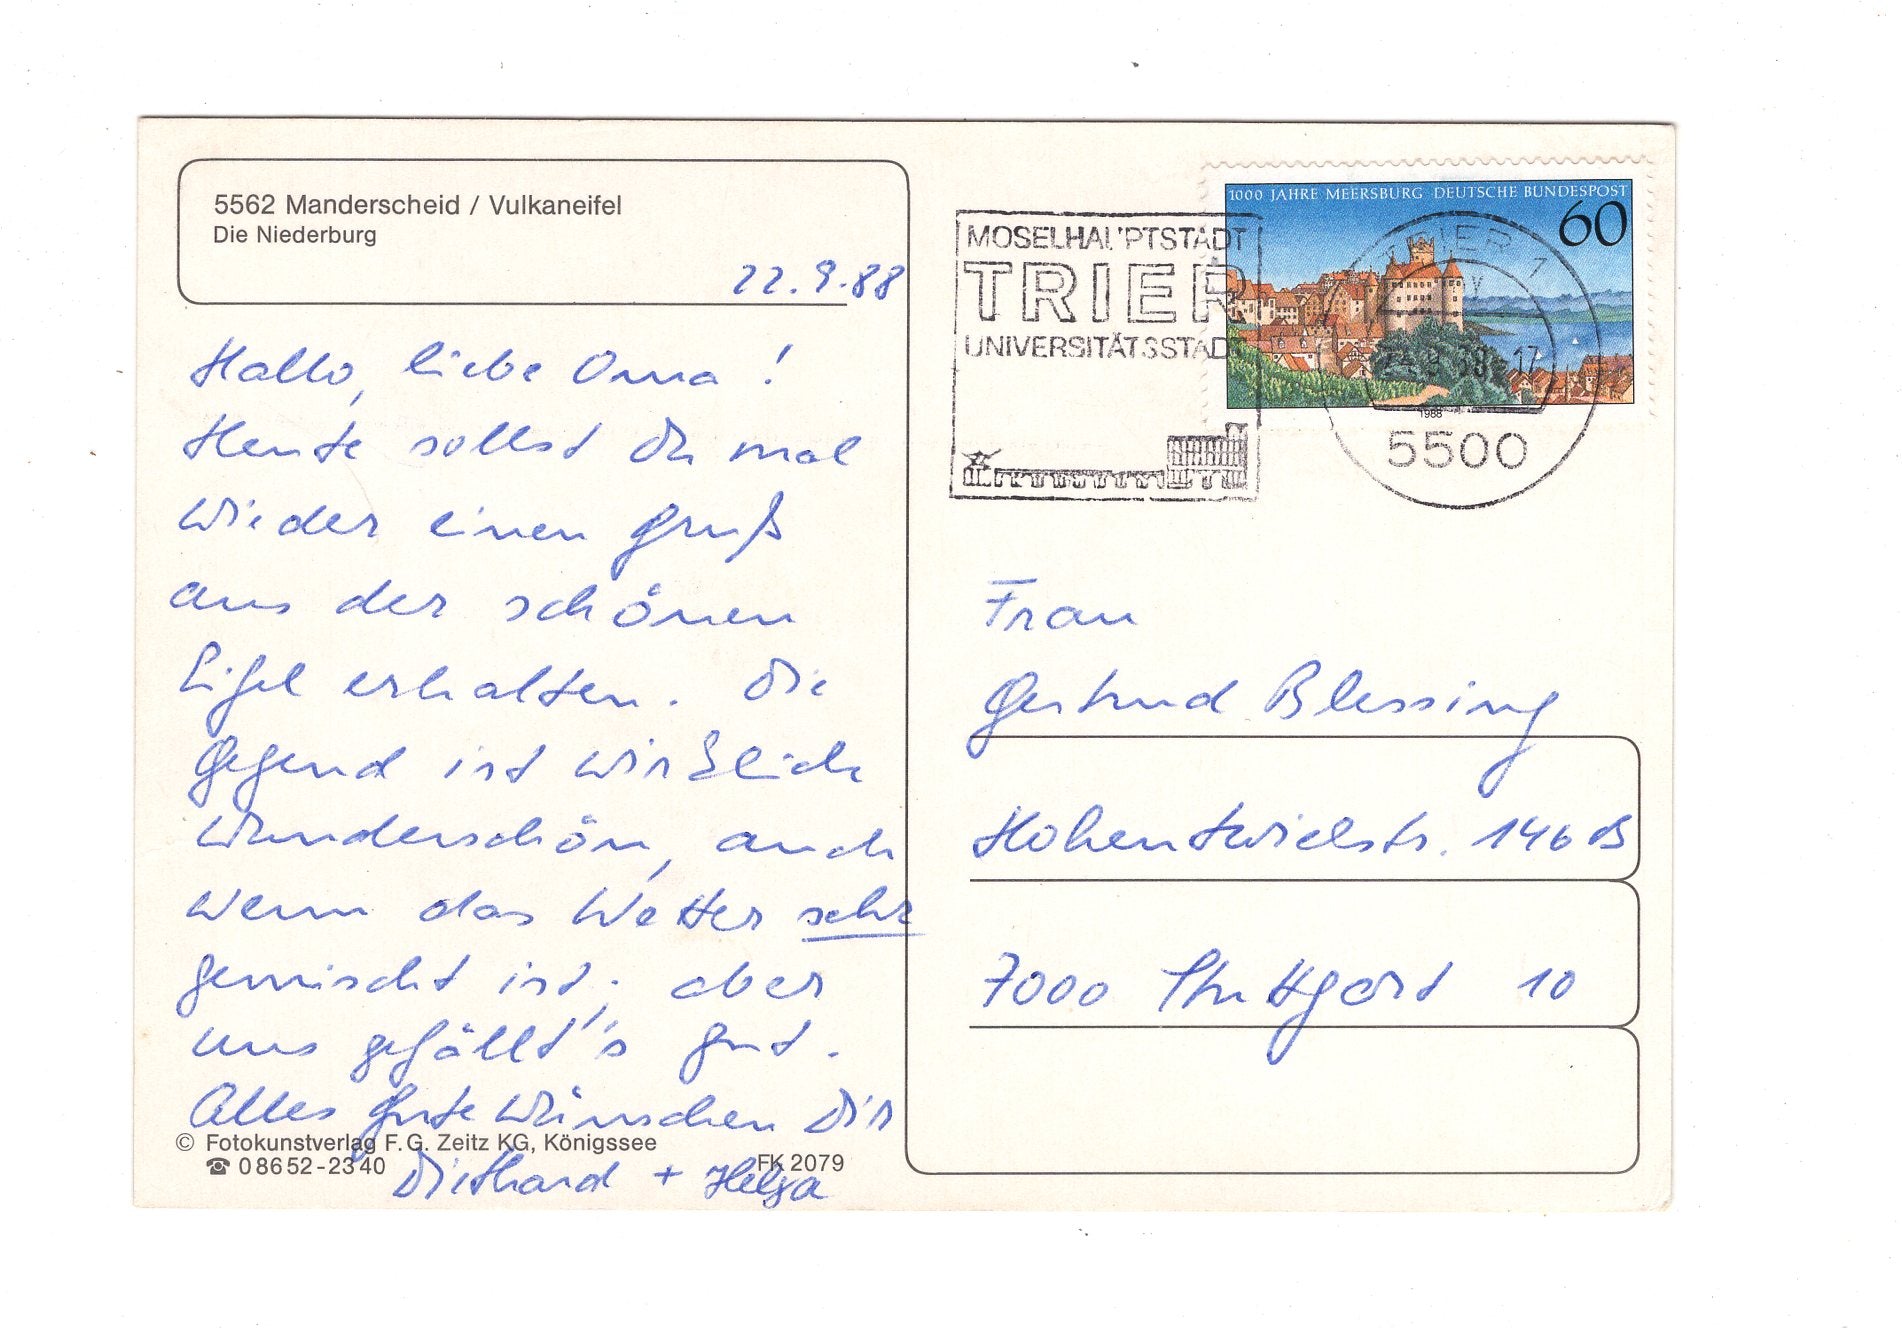 5562 Manderscheid / Vulkaneifel
Die Niederburg
22.9.88
Hallo, liebe Oma !
Heute sollst Du mal
wieder einen Gruß
aus der schönen
Eifel erhalten. Die
Gegend ist wirklich
wunderschön, auch
wenn das Wetter sehr
gemischt ist; aber
uns gefällt's gut.
Alles Gute wünschen Dir
Diethard + Helga
© Fotokunstverlag F. G. Zeitz KG, Königssee
☎ 08652-2340
FK 2079
MOSELHAUPTSTADT
TRIER
UNIVERSITÄTSSTADT
1000 JAHRE MEERSBURG DEUTSCHE BUNDESPOST
60
1988
TRIER 1
v
88-17
5500
Frau
Gertrud Blessing
Hohentwielstr. 146 B
7000 Stuttgart 10